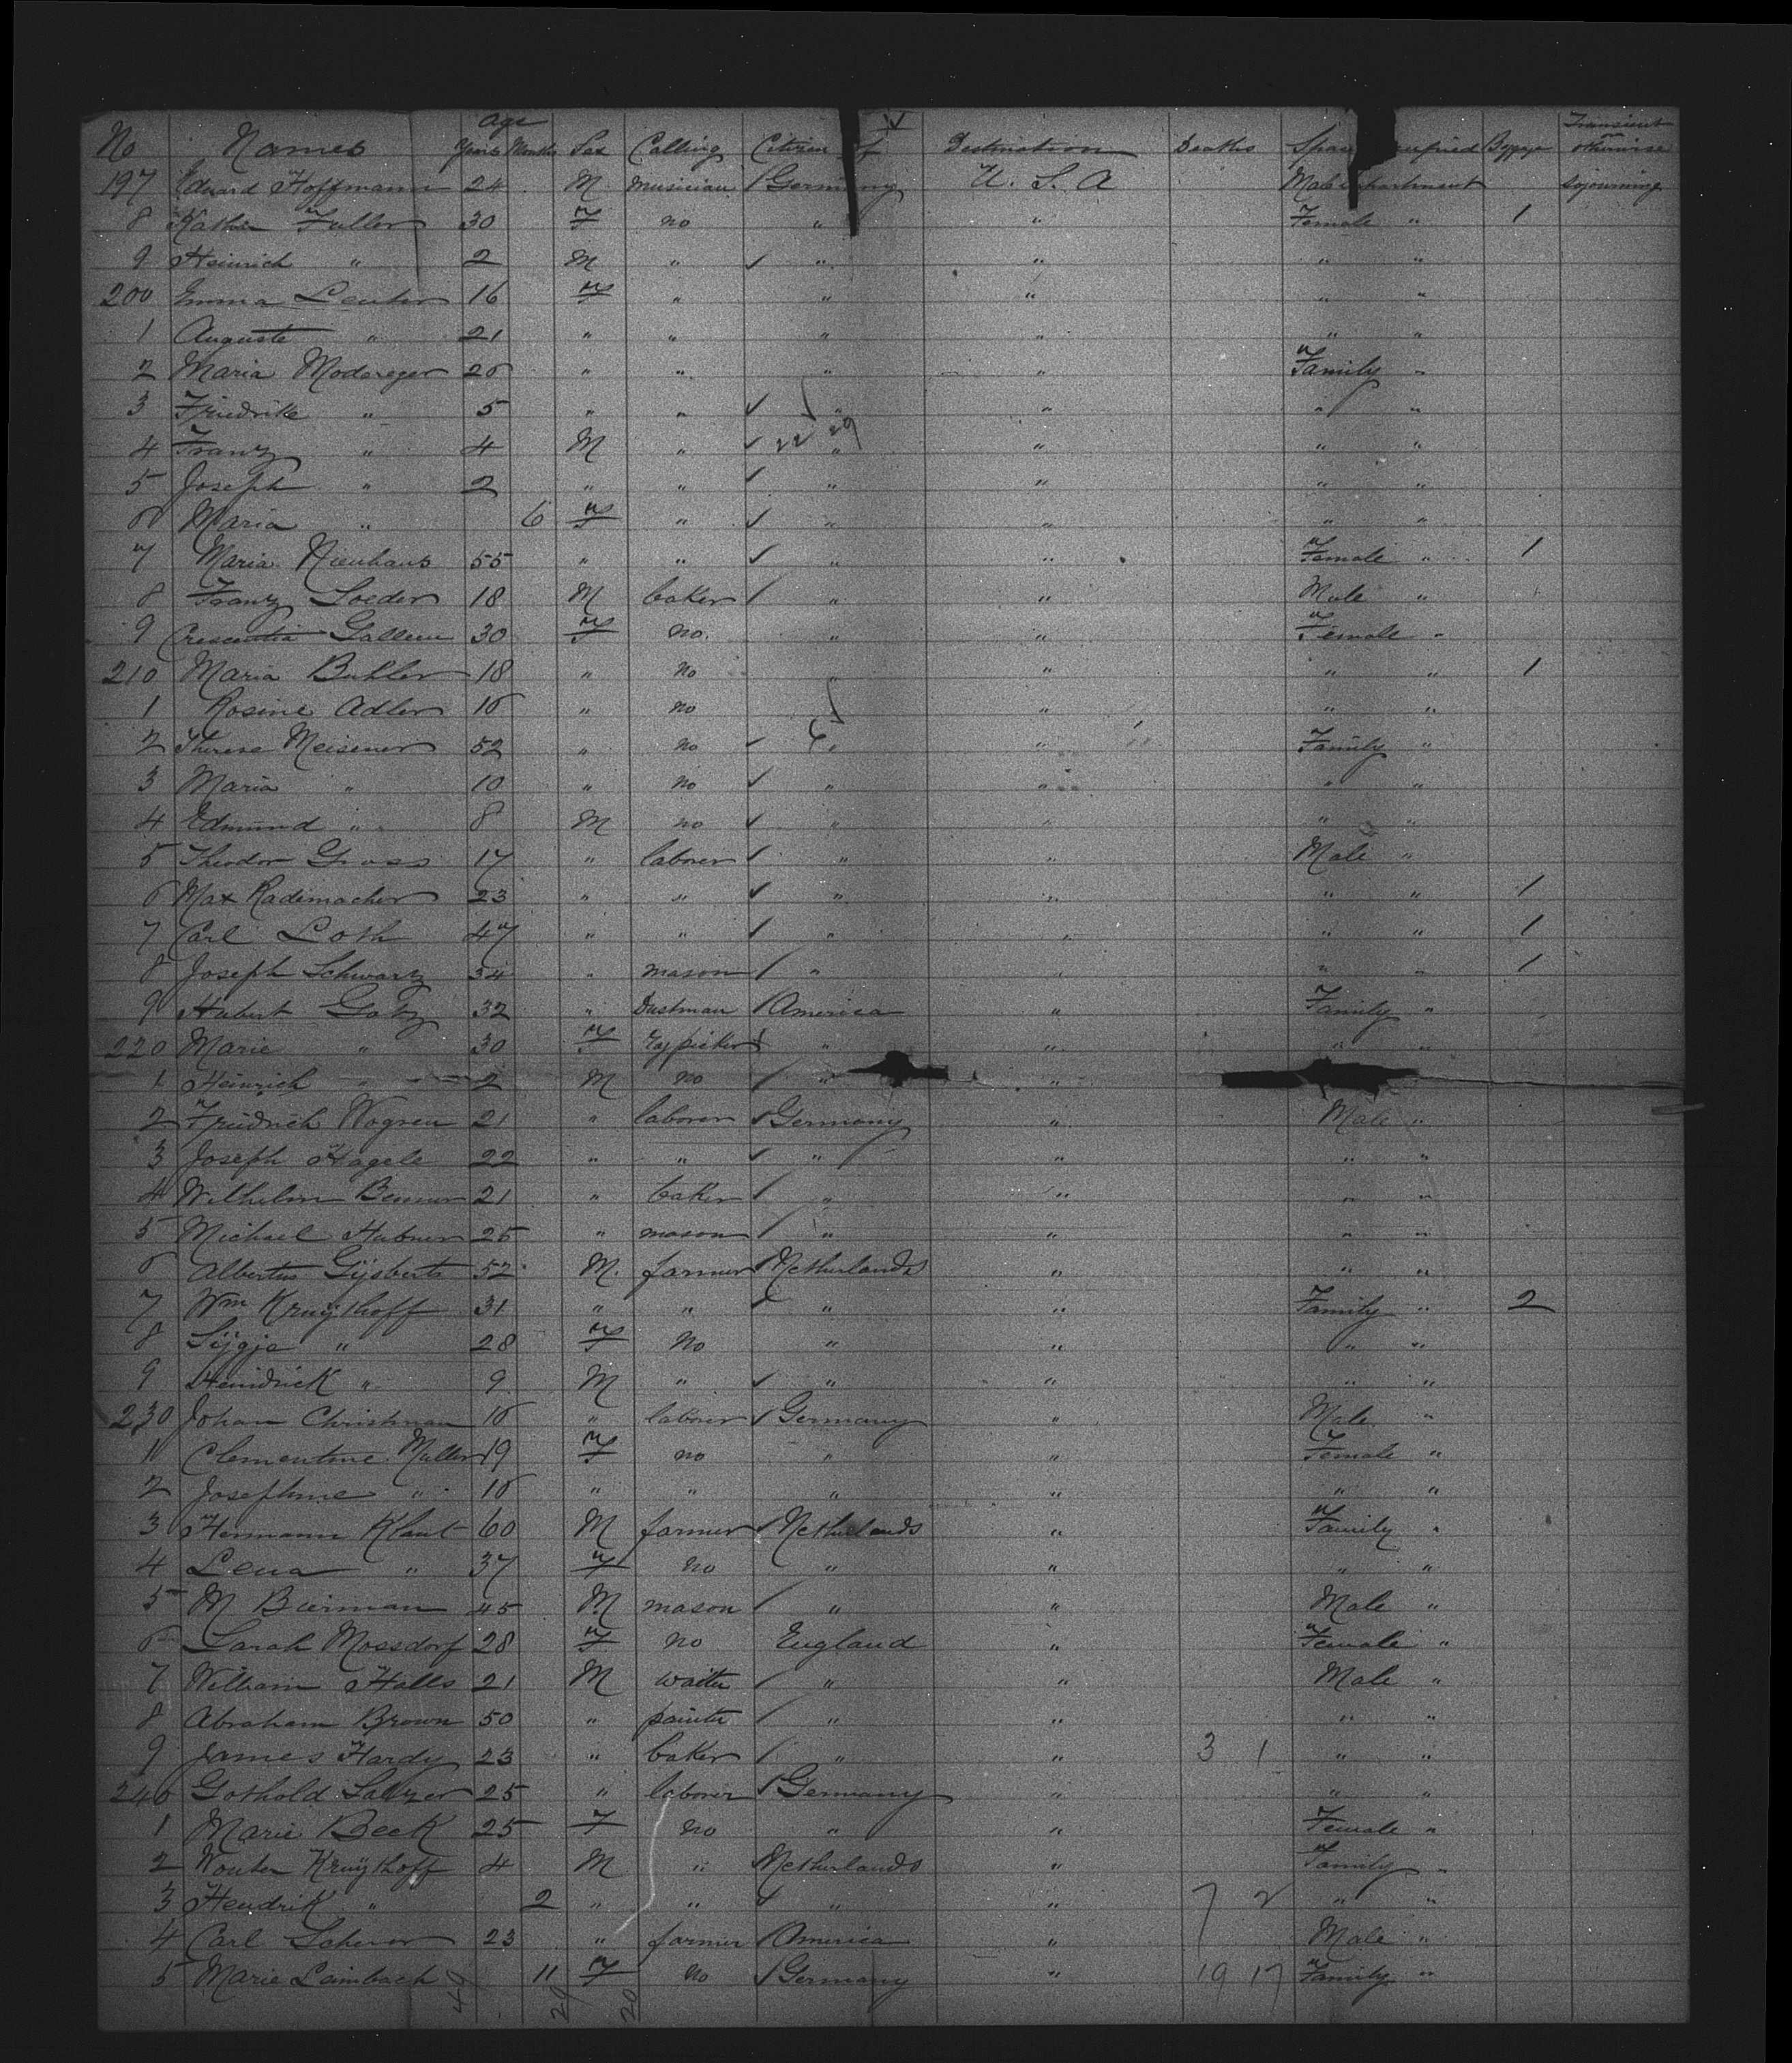 V
No Names age Years Months Sex Calling Citizen of Destination Deaths Space occupied Baggage Transient or otherwise
197 Eduard Hoffmann 24 M musician Germany U. S. A Male sojourning
8 Fuller 30 F no " " Female " 1
9 Heinrich " 2 M " ✓ " " " "
200 Emma 16 F " " " " "
1 Auguste " 21 " " " " " "
2 Maria 26 " " " " Family "
3 Friedrike " 5 " " ✓ " " " "
4 Franz " 4 M " ✓ 22 29 " " " "
5 Joseph " 2 " " ✓ " " " "
6 Maria " 6 F " ✓ " " " "
7 Maria Nieuhaus 55 " " ✓ " " Female " 1
8 Franz 18 M baker / " " Male "
9 Crescentia 30 F no. " " Female "
210 Maria Buhler 18 " no " " " " 1
1 Rosine Adler 16 " no " " " "
2 Therese Meisener 52 " no ✓ 6 " " Family "
3 Maria " 10 " no ✓ " " " "
4 Edmund " 8 M no ✓ " " " "
5 Theodor Gross 17 " laborer ✓ " " Male "
6 Max Rademacher 23 " " ✓ " " " " 1
7 Carl Loth 47 " " ✓ " " " " 1
8 Joseph Schwartz 34 " mason / " " " " 1
9 Hubert Gotz 32 " Dustman / America " Family "
220 Marie " 30 F Ragpicker " " " "
1 Heinrich " 2 M no / " " "
2 Friedrich Wogren 21 " laborer ✓ Germany " Male "
3 Joseph Hagele 22 " " ✓ " " " "
4 Wilhelm 21 " baker / " " " "
5 Michael Hubner 25 " mason / " " " "
6 Albertus Gijsberts 52 M. farmer / Netherlands " " "
7 Wm Kruijthoff 31 " " ✓ " " Family " 2
8 Sijgje " 28 F No " " " "
9 Hendrick " 9 M " ✓ " " " "
230 Johan Christman 16 " laborer ✓ Germany " Male "
1 Clementine Muller 19 F no " " Female "
2 Josephine " 16 " " " " " "
3 Hermann Klant 60 M farmer ✓ Netherlands " Family "
4 Lena " 37 F no " " " "
5 M Bierman 45 M mason / " " Male "
6 Sarah Mossdorf 28 F no England " Female "
7 William Halls 21 M waiter / " " Male "
8 Abraham Brown 50 " painter / " " " "
9 James Hardy 23 " baker / " " 3 1 " "
240 Gothold Salzer 25 " laborer ✓ Germany " " "
1 Marie Beck 25 F no " " Female "
2 Wouter Kruijthoff 4 M " Netherlands " Family "
3 Hendrik " 2 " " ✓ " " 7 2 " "
4 Carl 23 " farmer / America " Male "
5 Marie Leimbach 11 F no ✓ Germany " 19 17 Family "
49 29 20